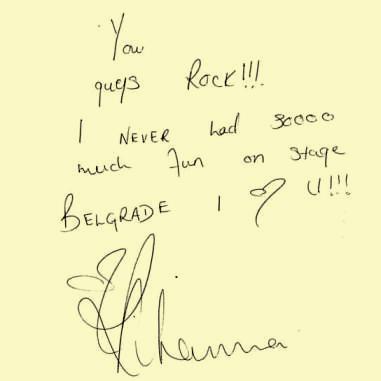 You
guys Rock!!!
I NEVER had soooo
much fun on stage
BELGRADE I ♡ U!!!
Rihanna